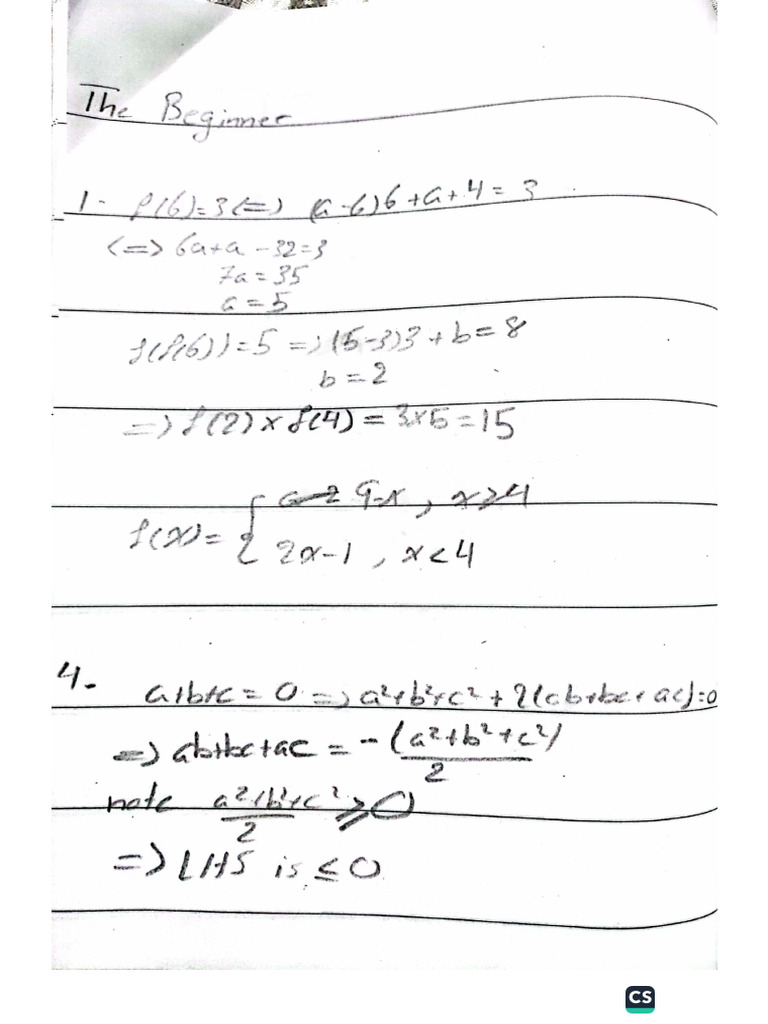 The Beginner
1- f(6)=3 <=> (a-6)6+a+4=3
<=> 6a+a-32=3
7a=35
a=5
f(f(6))=5 => (5-3)3+b=8
b=2
=> f(2)×f(4)=3×5=15
f(x)={ 9-x, x≥4
2x-1, x<4
4- a+b+c=0 => a²+b²+c²+2(ab+bc+ac)=0
=> ab+bc+ac = -(a²+b²+c²)/2
note a²+b²+c²/2 ≥0
=> LHS is ≤0
CS